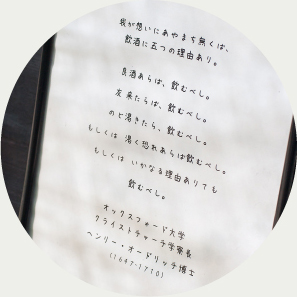 我が想いにあやまち無くば、
飲酒に五つの理由あり。
良酒あらば、飲むべし。
友来たらば、飲むべし。
のど渇きたら、飲むべし。
もしくは 渇く恐れあらば飲むべし。
もしくは いかなる理由ありても
飲むべし。
オックスフォード大学
クライストチャーチ学寮長
ヘンリー・オードリッチ博士
(1647-1710)